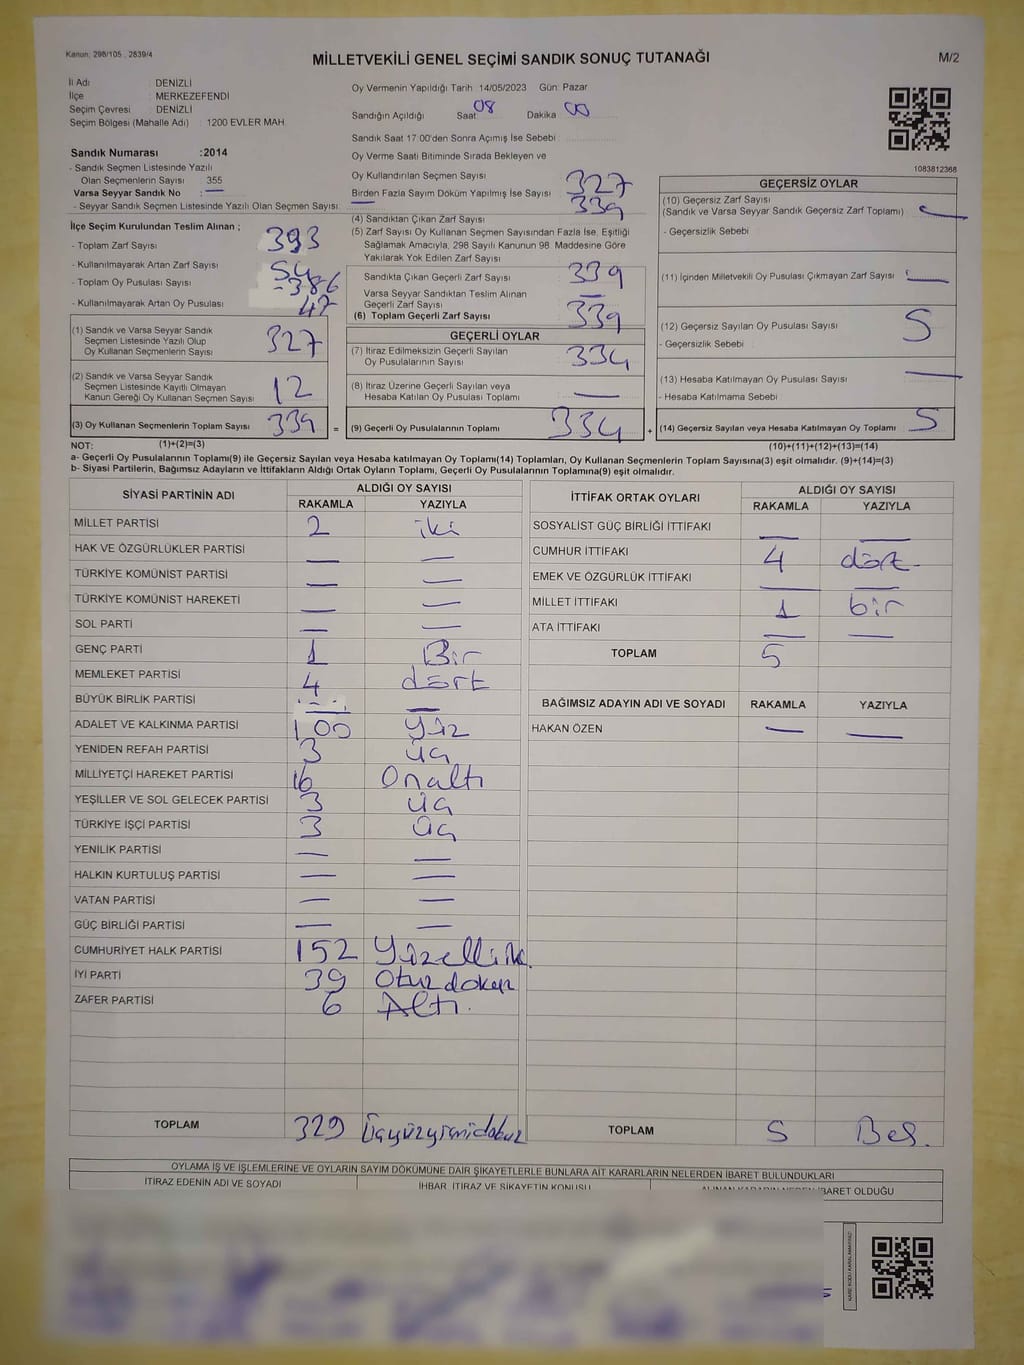 Kanun: 298/105 , 2839/4
MİLLETVEKİLİ GENEL SEÇİMİ SANDIK SONUÇ TUTANAĞI
M/2
İl Adı : DENİZLİ
İlçe : MERKEZEFENDİ
Seçim Çevresi : DENİZLİ
Seçim Bölgesi (Mahalle Adı) : 1200 EVLER MAH.
Sandık Numarası :2014
- Sandık Seçmen Listesinde Yazılı
Olan Seçmenlerin Sayısı : 355
Varsa Seyyar Sandık No : —
- Seyyar Sandık Seçmen Listesinde Yazılı Olan Seçmen Sayısı: —
Oy Vermenin Yapıldığı Tarih 14/05/2023 Gün: Pazar
Sandığın Açıldığı Saat 08 Dakika 00
Sandık Saat 17:00'den Sonra Açımış İse Sebebi
Oy Verme Saati Bitiminde Sırada Bekleyen ve
Oy Kullandırılan Seçmen Sayısı 327
Birden Fazla Sayım Döküm Yapılmış İse Sayısı
1083812368
İlçe Seçim Kurulundan Teslim Alınan ;
- Toplam Zarf Sayısı 393
- Kullanılmayarak Artan Zarf Sayısı 54
- Toplam Oy Pusulası Sayısı 386
- Kullanılmayarak Artan Oy Pusulası 47
(1) Sandık ve Varsa Seyyar Sandık
Seçmen Listesinde Yazılı Olup
Oy Kullanan Seçmenlerin Sayısı 327
(2) Sandık ve Varsa Seyyar Sandık
Seçmen Listesinde Kayıtlı Olmayan
Kanun Gereği Oy Kullanan Seçmen Sayısı 12
(3) Oy Kullanan Seçmenlerin Toplam Sayısı 339 =
(4) Sandıktan Çıkan Zarf Sayısı 339
(5) Zarf Sayısı Oy Kullanan Seçmen Sayısından Fazla İse, Eşitliği
Sağlamak Amacıyla, 298 Sayılı Kanunun 98. Maddesine Göre
Yakılarak Yok Edilen Zarf Sayısı
Sandıkta Çıkan Geçerli Zarf Sayısı 339
Varsa Seyyar Sandıktan Teslim Alınan
Geçerli Zarf Sayısı —
(6) Toplam Geçerli Zarf Sayısı 339
GEÇERLİ OYLAR
(7) İtiraz Edilmeksizin Geçerli Sayılan
Oy Pusulalarının Sayısı 334
(8) İtiraz Üzerine Geçerli Sayılan veya
Hesaba Katılan Oy Pusulası Toplamı —
(9) Geçerli Oy Pusulalarının Toplamı 334 +
GEÇERSİZ OYLAR
(10) Geçersiz Zarf Sayısı
(Sandık ve Varsa Seyyar Sandık Geçersiz Zarf Toplamı) —
- Geçersizlik Sebebi
(11) İçinden Milletvekili Oy Pusulası Çıkmayan Zarf Sayısı —
(12) Geçersiz Sayılan Oy Pusulası Sayısı 5
- Geçersizlik Sebebi
(13) Hesaba Katılmayan Oy Pusulası Sayısı —
- Hesaba Katılmama Sebebi
(14) Geçersiz Sayılan veya Hesaba Katılmayan Oy Toplamı 5
NOT: (1)+(2)=(3)
(10)+(11)+(12)+(13)=(14)
a- Geçerli Oy Pusulalarının Toplamı(9) ile Geçersiz Sayılan veya Hesaba katılmayan Oy Toplamı(14) Toplamları, Oy Kullanan Seçmenlerin Toplam Sayısına(3) eşit olmalıdır. (9)+(14)=(3)
b- Siyasi Partilerin, Bağımsız Adayların ve İttifakların Aldığı Ortak Oyların Toplamı, Geçerli Oy Pusulalarının Toplamına(9) eşit olmalıdır.
SİYASİ PARTİNİN ADI ALDIĞI OY SAYISI
RAKAMLA YAZIYLA
MİLLET PARTİSİ 2 iki
HAK VE ÖZGÜRLÜKLER PARTİSİ — —
TÜRKİYE KOMÜNİST PARTİSİ — —
TÜRKİYE KOMÜNİST HAREKETİ — —
SOL PARTİ — —
GENÇ PARTİ 1 Bir
MEMLEKET PARTİSİ 4 dört
BÜYÜK BİRLİK PARTİSİ — —
ADALET VE KALKINMA PARTİSİ 100 Yüz
YENİDEN REFAH PARTİSİ 3 üç
MİLLİYETÇİ HAREKET PARTİSİ 16 Onaltı
YEŞİLLER VE SOL GELECEK PARTİSİ 3 üç
TÜRKİYE İŞÇİ PARTİSİ 3 üç
YENİLİK PARTİSİ — —
HALKIN KURTULUŞ PARTİSİ — —
VATAN PARTİSİ — —
GÜÇ BİRLİĞİ PARTİSİ — —
CUMHURİYET HALK PARTİSİ 152 Yüzelliik
İYİ PARTİ 39 Otuzdokuz
ZAFER PARTİSİ 6 Altı.
TOPLAM 329 Üçyüzyirmidokuz
İTTİFAK ORTAK OYLARI ALDIĞI OY SAYISI
RAKAMLA YAZIYLA
SOSYALİST GÜÇ BİRLİĞİ İTTİFAKI — —
CUMHUR İTTİFAKI 4 dört
EMEK VE ÖZGÜRLÜK İTTİFAKI — —
MİLLET İTTİFAKI 1 bir
ATA İTTİFAKI — —
TOPLAM 5
BAĞIMSIZ ADAYIN ADI VE SOYADI RAKAMLA YAZIYLA
HAKAN ÖZEN — —
TOPLAM 5 Beş.
OYLAMA İŞ VE İŞLEMLERİNE VE OYLARIN SAYIM DÖKÜMÜNE DAİR ŞİKAYETLERLE BUNLARA AİT KARARLARIN NELERDEN İBARET BULUNDUKLARI
İTİRAZ EDENİN ADI VE SOYADI İHBAR, İTİRAZ VE ŞİKAYETİN KONUSU ALINAN KARARIN NEDEN İBARET OLDUĞU